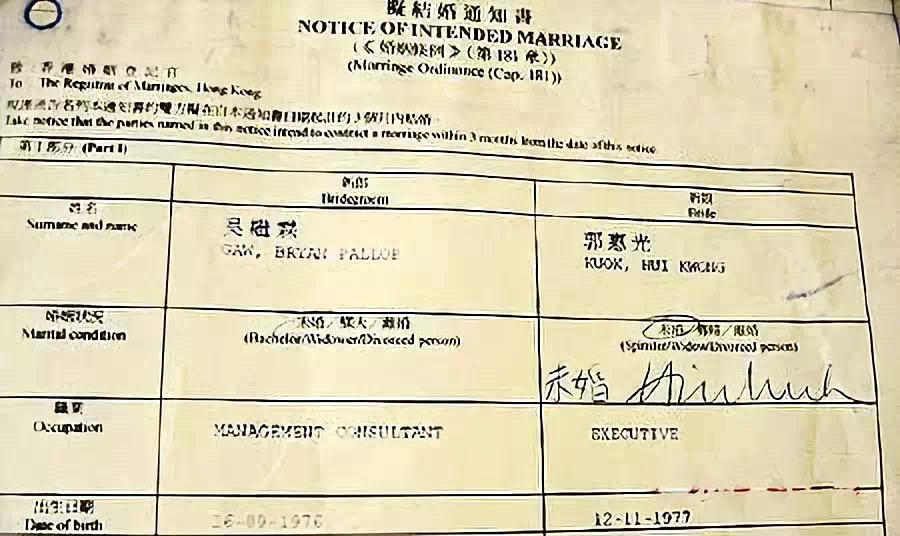 擬結婚通知書
NOTICE OF INTENDED MARRIAGE
(《婚姻條例》(第 181 章))
(Marriage Ordinance (Cap. 181))
致：香港婚姻登記官
To The Registrar of Marriages, Hong Kong
Take notice that the parties named in this notice intend to contract a marriage within 3 months from the date of this notice.
第 I 部分 (Part I)
新郎
Bridegroom
新娘
Bride
姓名
Surname and name
吳繼霖
GAW, BRYAN PALLOP
郭惠光
KUOK, HUI KWONG
婚姻狀況
Marital condition
未婚／鰥夫／離婚
(Bachelor/Widower/Divorced person)
未婚／寡婦／離婚
(Spinster/Widow/Divorced person)
未婚
職業
Occupation
MANAGEMENT CONSULTANT
EXECUTIVE
出生日期
Date of birth
16-09-1976
12-11-1977